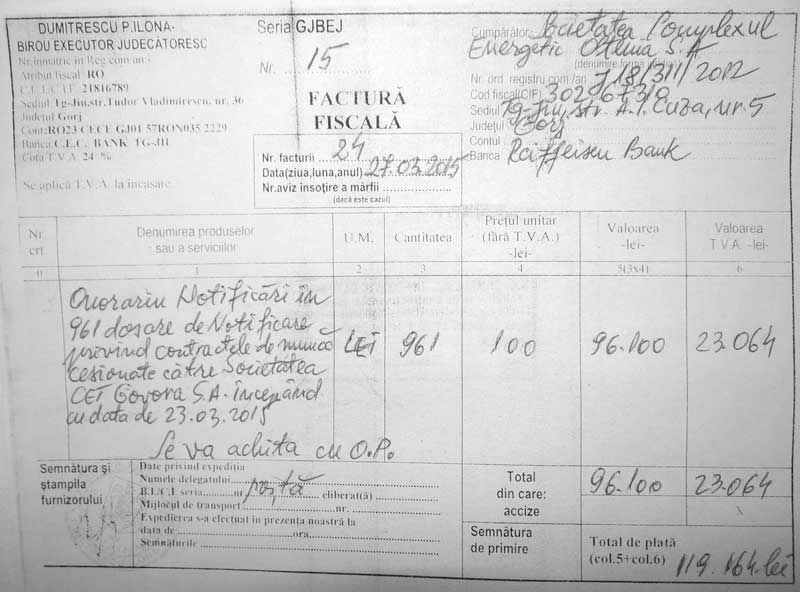 DUMITRESCU P.ILONA-
BIROU EXECUTOR JUDECĂTORESC
Nr.înmatric în Reg com/an -
Atribut fiscal RO
C.U.I./C.I.F. 21816789
Sediul Tg-Jiu,str.Tudor Vladimirescu, nr. 36
Județul Gorj
Cont:RO23 CECE GJ01 57RON035 2229
Banca C.E.C. BANK TG-JIU
Cota T.V.A. 24 %
Se aplică T.V.A. la încasare
Seria GJBEJ
Nr. 15
FACTURĂ
FISCALĂ
Nr. facturii 24
Data(ziua,luna,anul) 27.03.2015
Nr.aviz însoțire a mărfii
(dacă este cazul)
Cumpărător: Societatea Complexul
Energetic Oltenia S.A
(denumire,forma juridică)
Nr. ord. registru com /an J18/311/2012
Cod fiscal(CIF) 30267310
Sediul Tg-Jiu, str. A.I. Cuza, nr. 5
Județul Gorj
Contul
Banca Raiffeisen Bank
Nr. crt.
Denumirea produselor sau a serviciilor
U.M.
Cantitatea
Prețul unitar (fără T.V.A.) -lei-
Valoarea -lei-
Valoarea T.V.A. -lei-
0 1 2 3 4 5(3x4) 6
Onorariu Notificări în
961 dosare de Notificare
privind contractele de muncă LEI 961 100 96.100 23.064
cesionate către Societatea
CET Govora S.A. începând
cu data de 23.03.2015
Se va achita cu O.P.
Semnătura și
ștampila
furnizorului
Date privind expediția
Numele delegatului
B.I./C.I. seria nr poștă eliberat(ă)
Mijlocul de transport nr.
Expedierea s-a efectuat în prezența noastră la
data de ora
Semnăturile
Total 96.100 23.064
din care:
accize X
Semnătura
de primire
Total de plată
(col.5+col.6) 119.164 lei